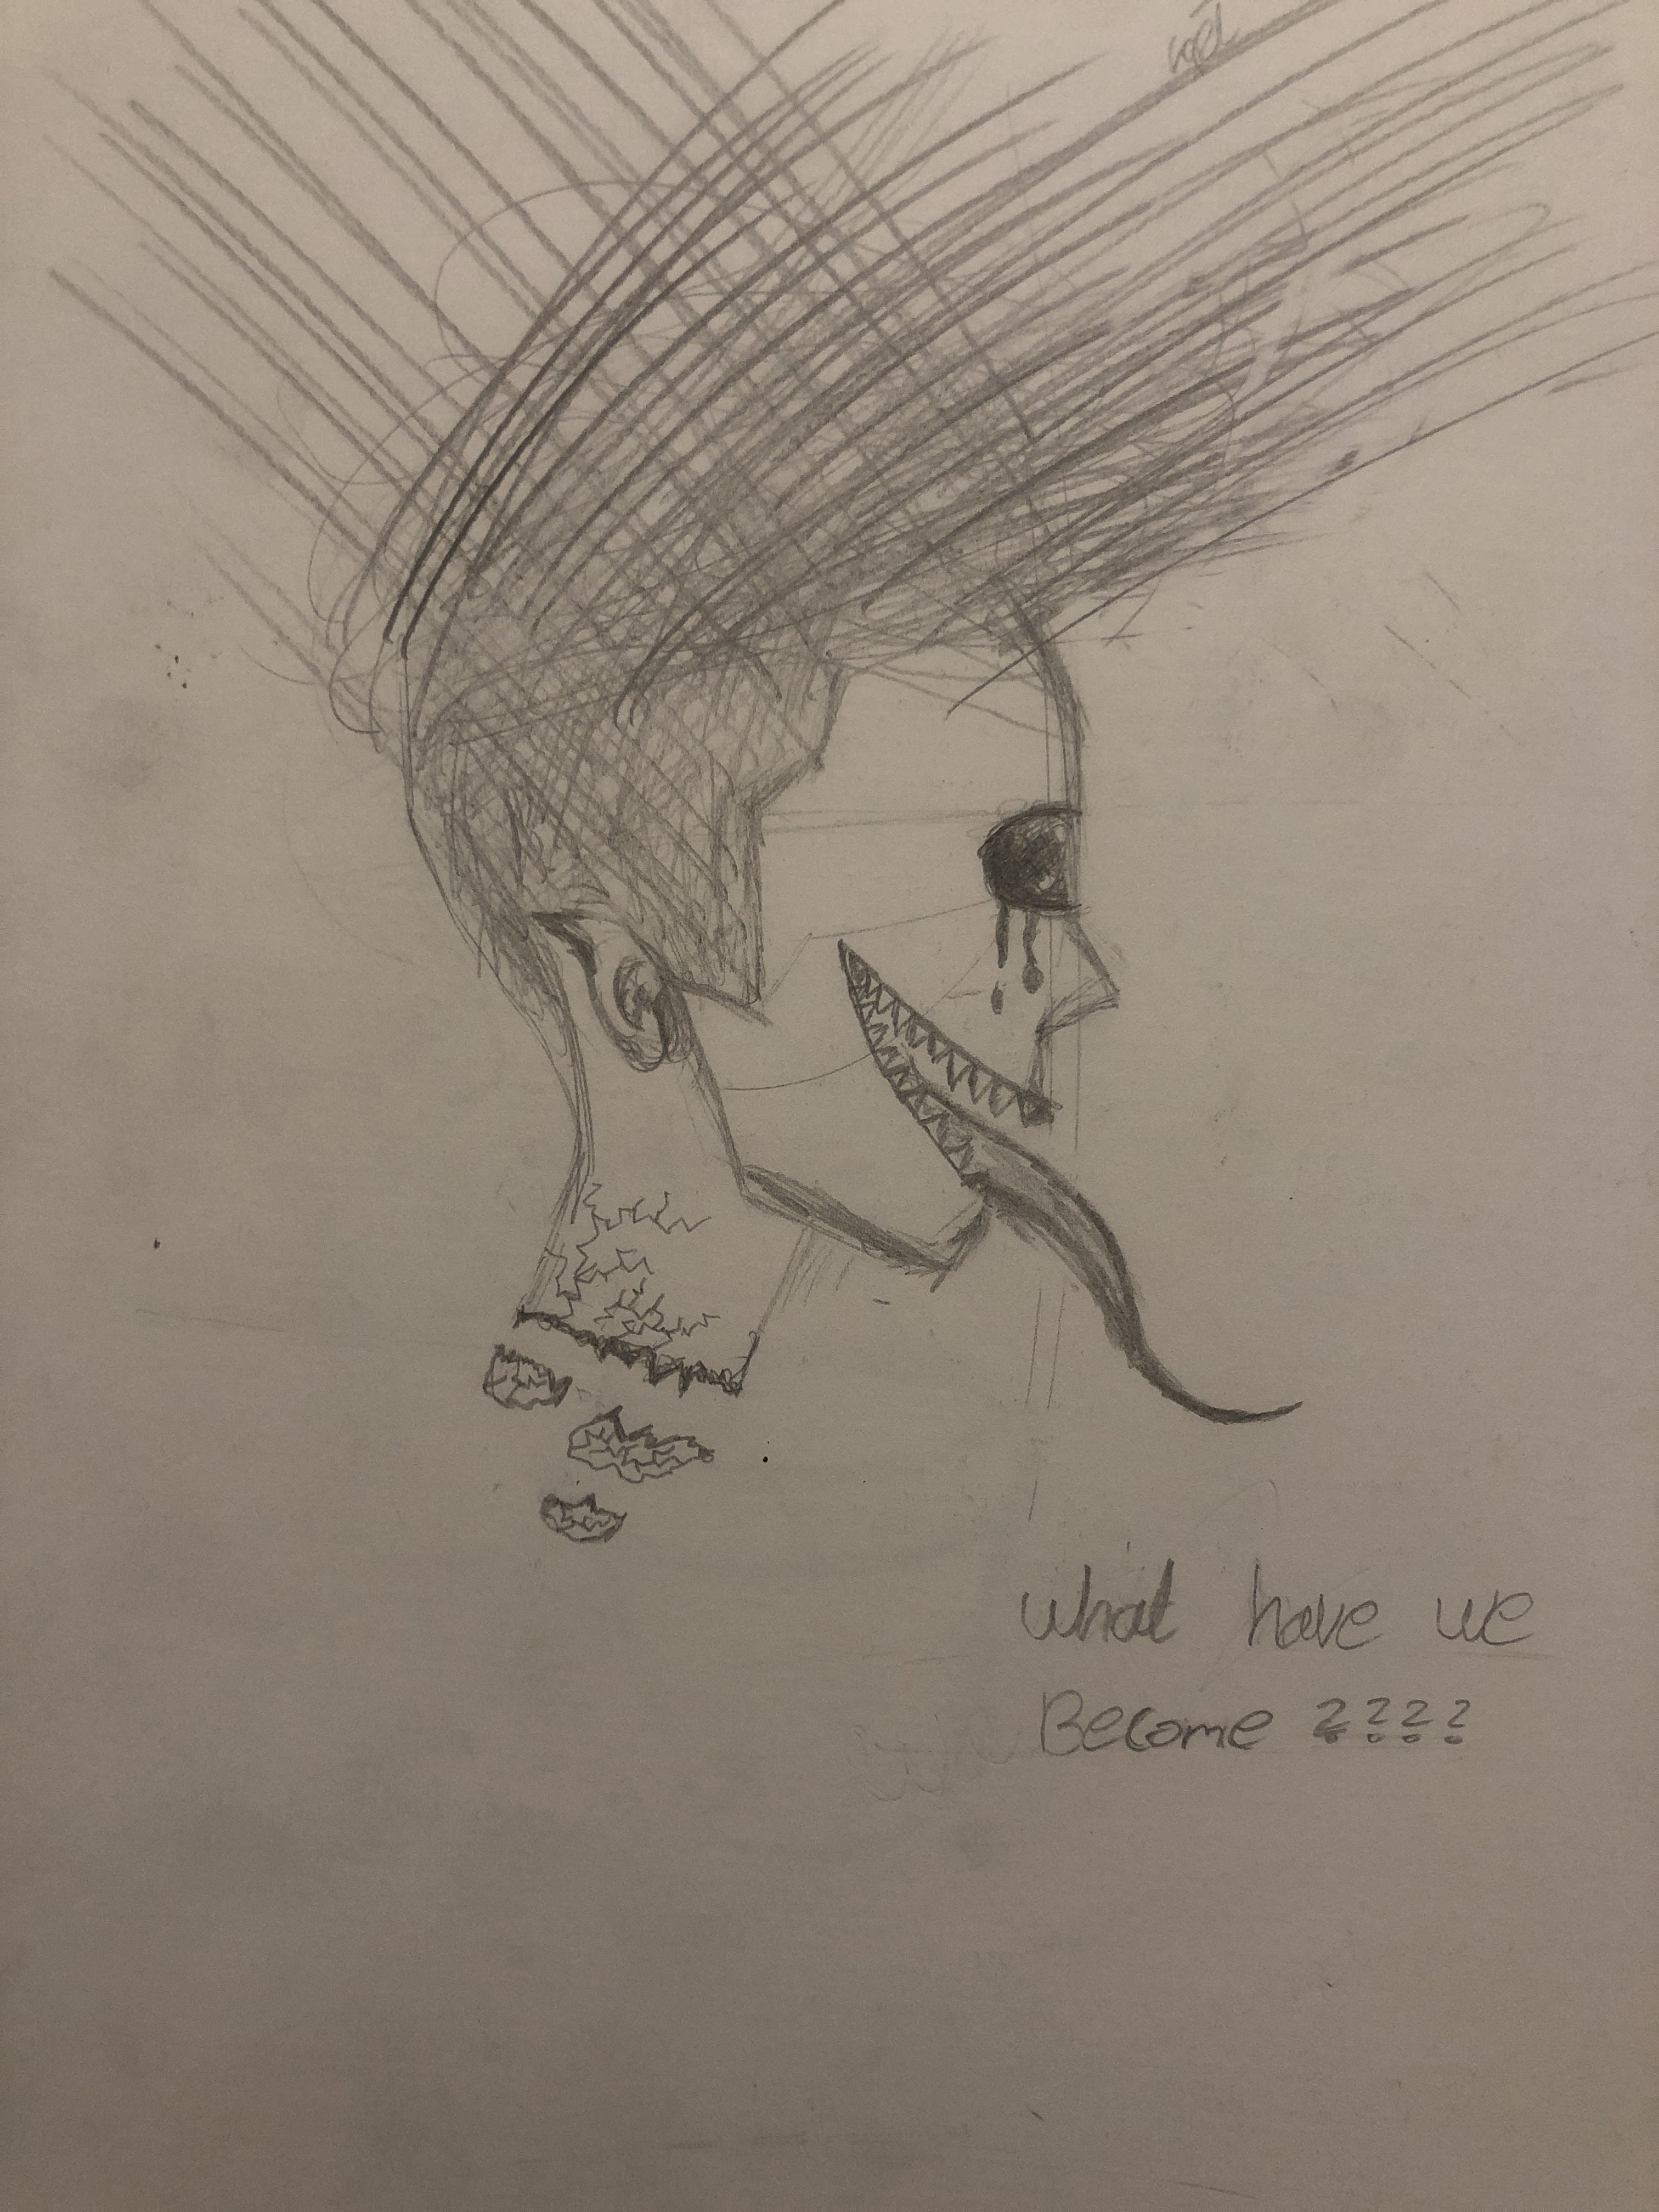 what have we
Become ????